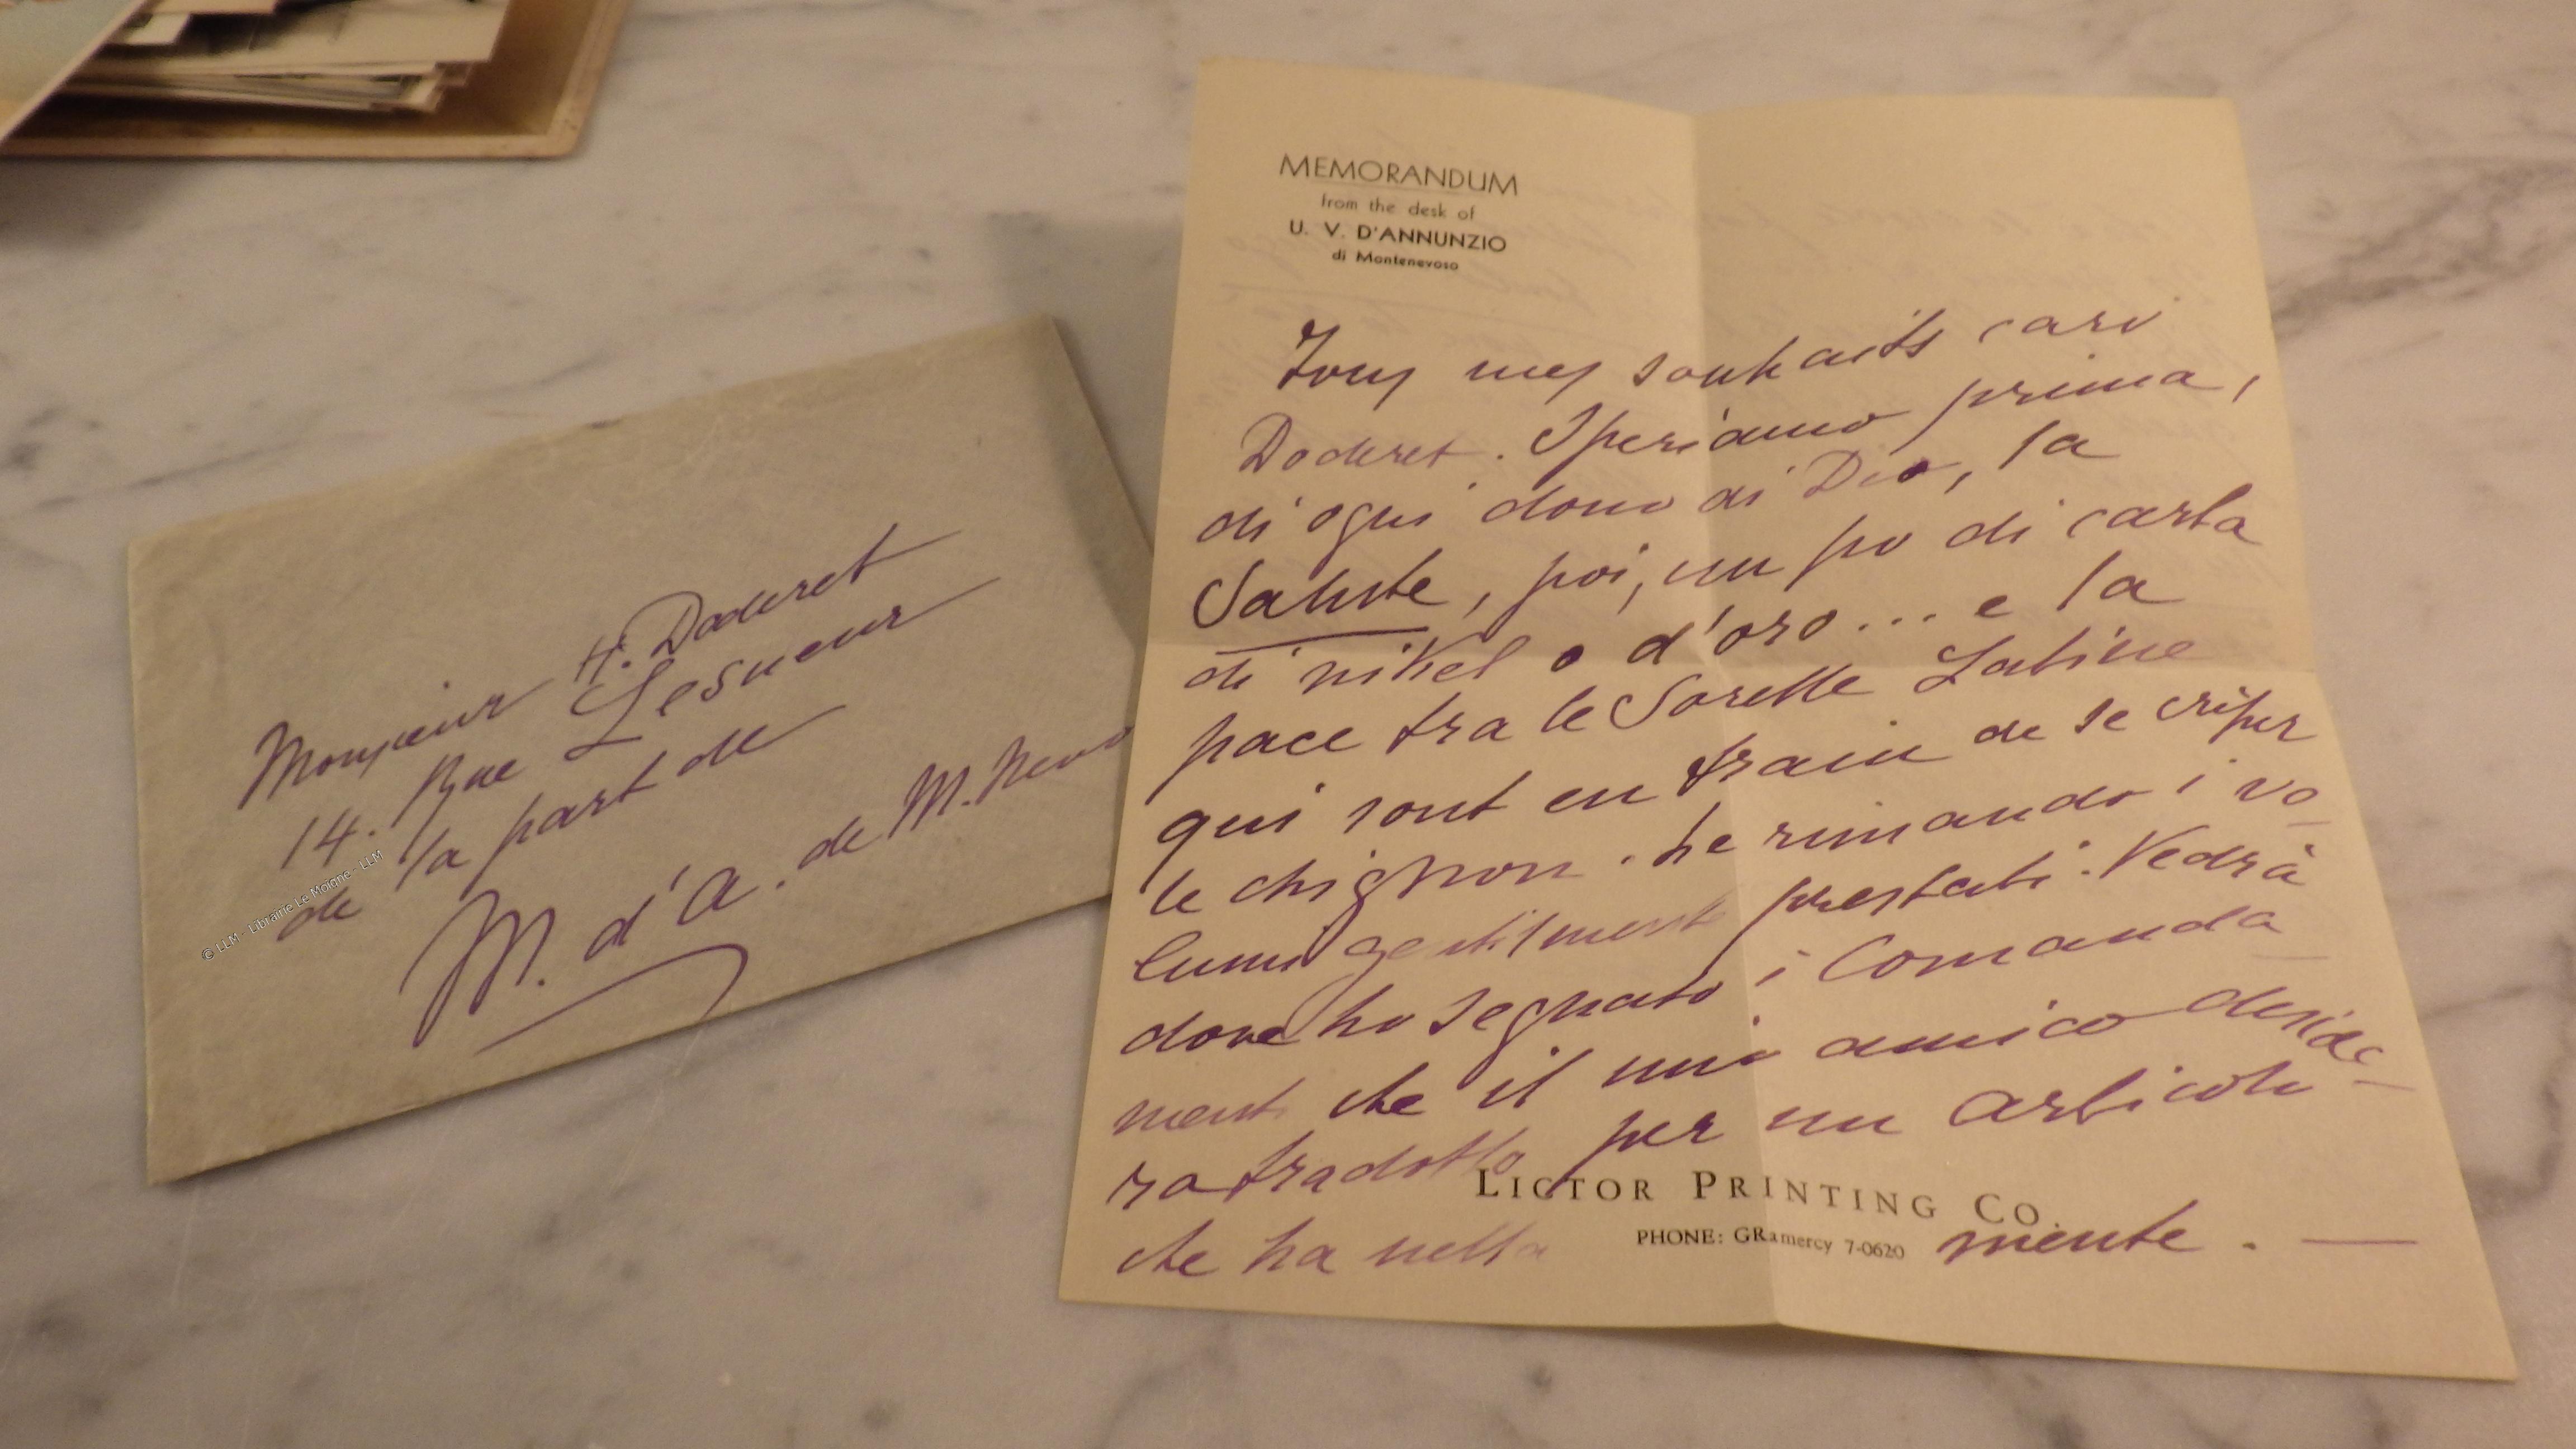 Monsieur H. Doderet
14. Rue Lesueur
de la part de
M. d'A. de M. Nevo
© LLM - Librairie Le Moigne - LLM
MEMORANDUM
from the desk of
U. V. D'ANNUNZIO
di Montenevoso
Tous mes souhaits cari
Doderet. Speriamo prima,
di ogni dono di Dio, la
Salute, poi, un po di carta
di nikel o d'oro... e la
pace tra le Sorelle Latine
qui sont en train de se crêper
le chignon. Le rimando i vo_
lumi gentilmente prestati. Vedrà
dove ho segnato i Comanda_
menti che il mio amico deside_
ra tradotto per un articolo
LICTOR PRINTING CO.
PHONE: GRamercy 7-0620
che ha nella mente. —